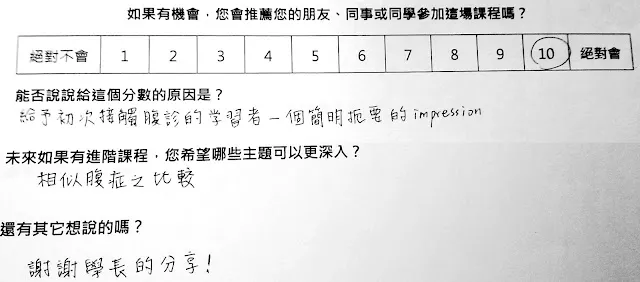 如果有機會，您會推薦您的朋友、同事或同學參加這場課程嗎？
絕對不會 1 2 3 4 5 6 7 8 9 10 絕對會
能否說說給這個分數的原因是？
給予初次接觸腹診的学習者一個簡明扼要的impression
未來如果有進階課程，您希望哪些主題可以更深入？
相似腹症之比較
還有其它想說的嗎？
謝謝學長的分享！